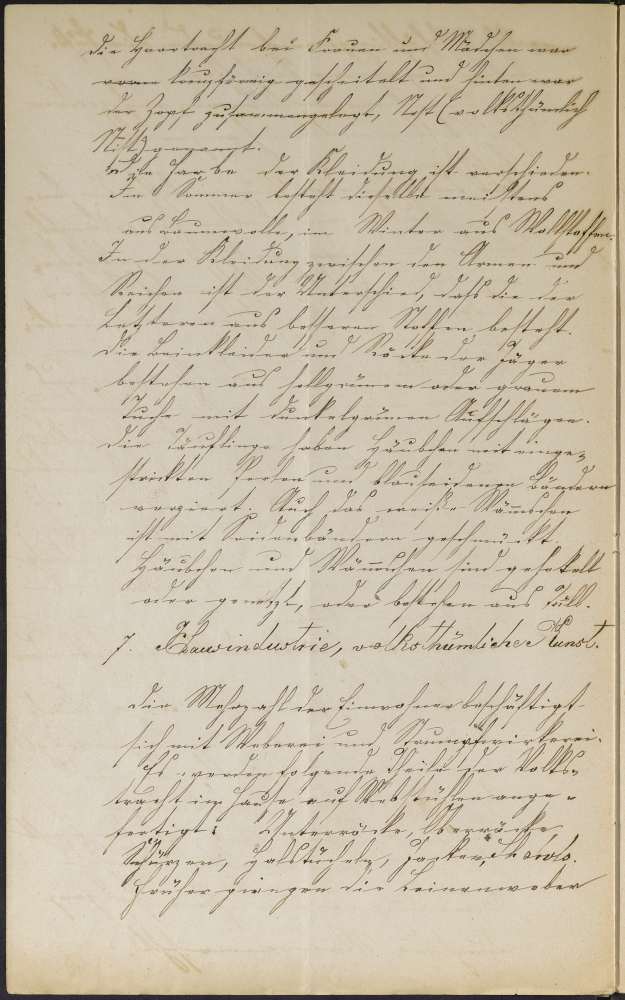 Die Haartracht bei Frauen und Mädchen war
vorn kreuzförmig gescheitelt und hinten war
der Zopf zusammengelegt, Nest (volksthümlich
Nist) genannt.
Die Farbe der Kleidung ist verschieden.
Im Sommer besteht dieselbe meistens
aus Baumwolle, im Winter aus Wollstoffen.
In der Kleidung zwischen den Armen und
Reichen ist der Unterschied, daß die der
Letzteren aus besseren Stoffen besteht.
Die Beinkleider und Röcke der Jäger
bestehen aus hellgrünem oder grauem
Tuche mit dunkelgrünen Aufschlägen.
Die Täuflinge haben Häubchen mit einge-
strickten Perlen und blauseidenen Bändern
verziert. Auch das weiße Wämschen
ist mit Seidenbändern geschmückt.
Häubchen und Wämschen sind gehäkelt
oder genetzt, oder bestehen aus Tüll.
7. Hausindustrie, volksthümliche Kunst.
Die Mehrzahl der Einwohner beschäftigt
sich mit Weberei und Strumpfwirkerei.
Es werden folgende Theile der Volks-
tracht im Hause auf Webstühlen ange-
fertigt: Unterröcke, Oberröcke,
Schürzen, Halstücheln, Jacken, Shawls.
Früher giengen die Leinenweber